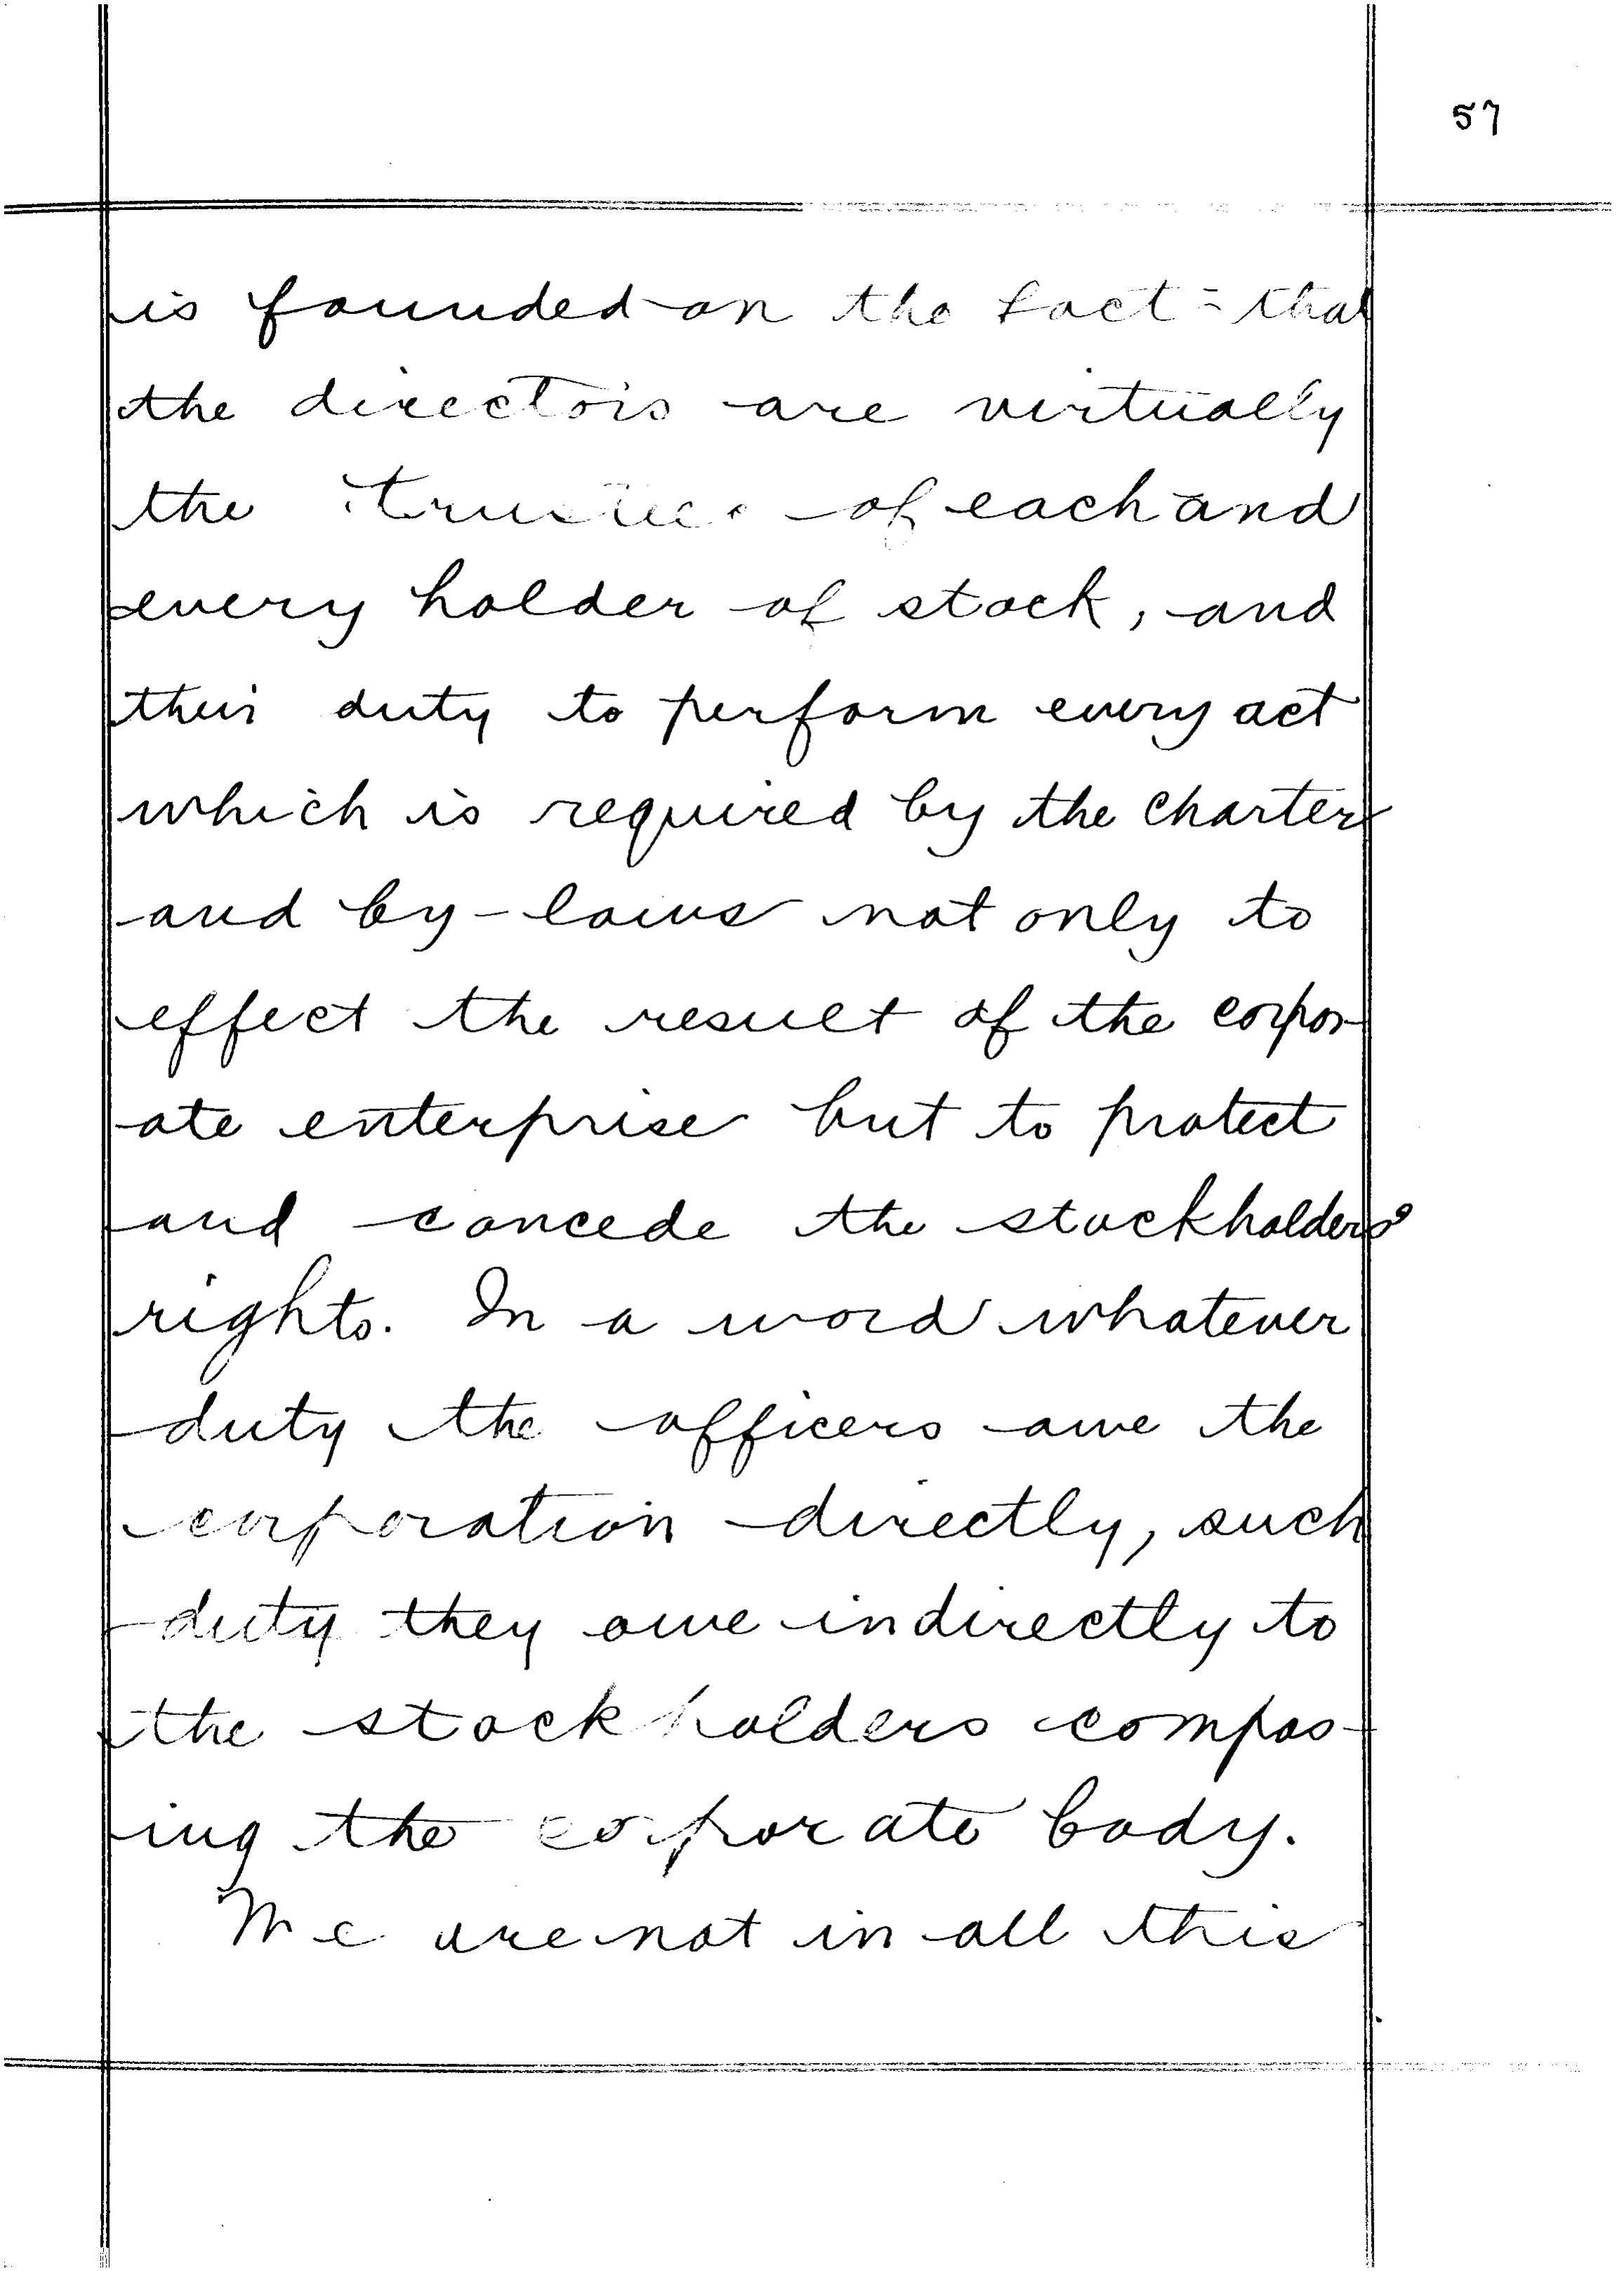 57
is founded on the fact that
the directors are virtually
the trustees of each and
every holder of stock, and
their duty to perform every act
which is required by the charter
and by-laws not only to
effect the result of the corpor-
ate enterprise but to protect
and concede the stockholders'
rights. In a word whatever
duty the officers owe the
corporation directly, such
duty they owe indirectly to
the stockholders compos-
ing the corporate body.
We are not in all this